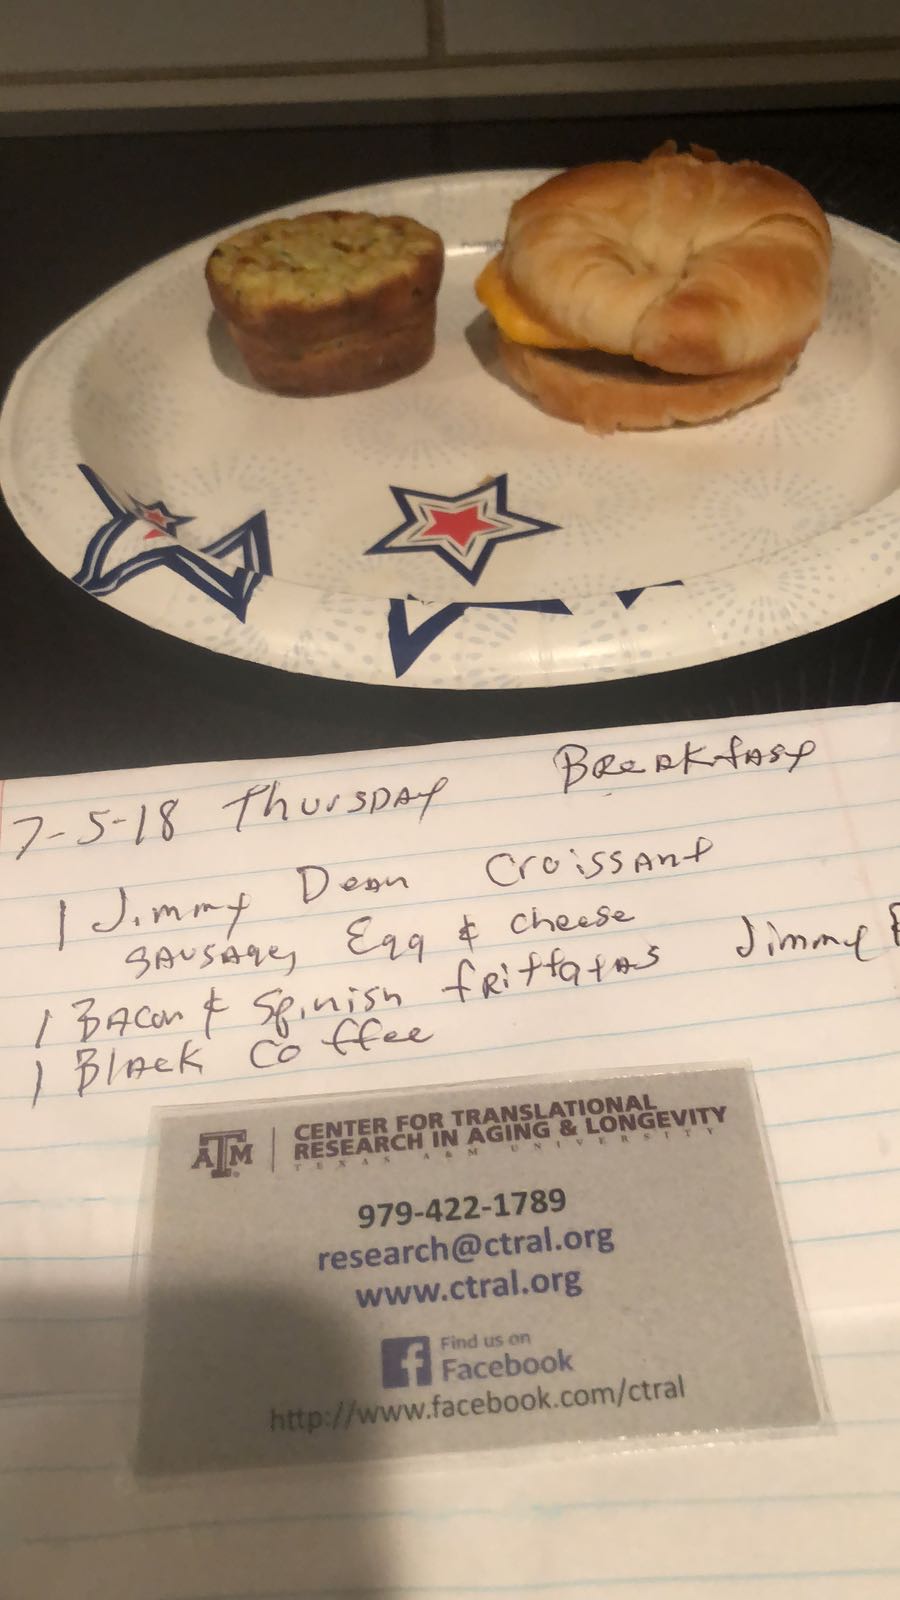 7-5-18 Thursday Breakfast
1 Jimmy Dean Croissant
Sausage, Egg & cheese
1 Bacon & Spinish frittatas Jimmy
1 Black Coffee
ATM CENTER FOR TRANSLATIONAL
RESEARCH IN AGING & LONGEVITY
TEXAS A&M UNIVERSITY
979-422-1789
research@ctral.org
www.ctral.org
f Find us on
Facebook
http://www.facebook.com/ctral